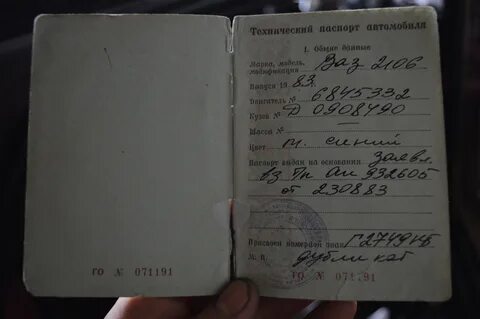 Технический паспорт автомобиля
1. Общие данные
Марка, модель, модификация Ваз 2106
Выпуск 19 83г.
Двигатель № 6845332
Кузов № Д 0908490
Шасси № —
Цвет т. синий
Паспорт выдан на основании заявл.
вз т/п АИ 932605
от 230883
Присвоен номерной знак Г2749КБ
М. П. дубликат
ГО № 071191
ГО № 071191